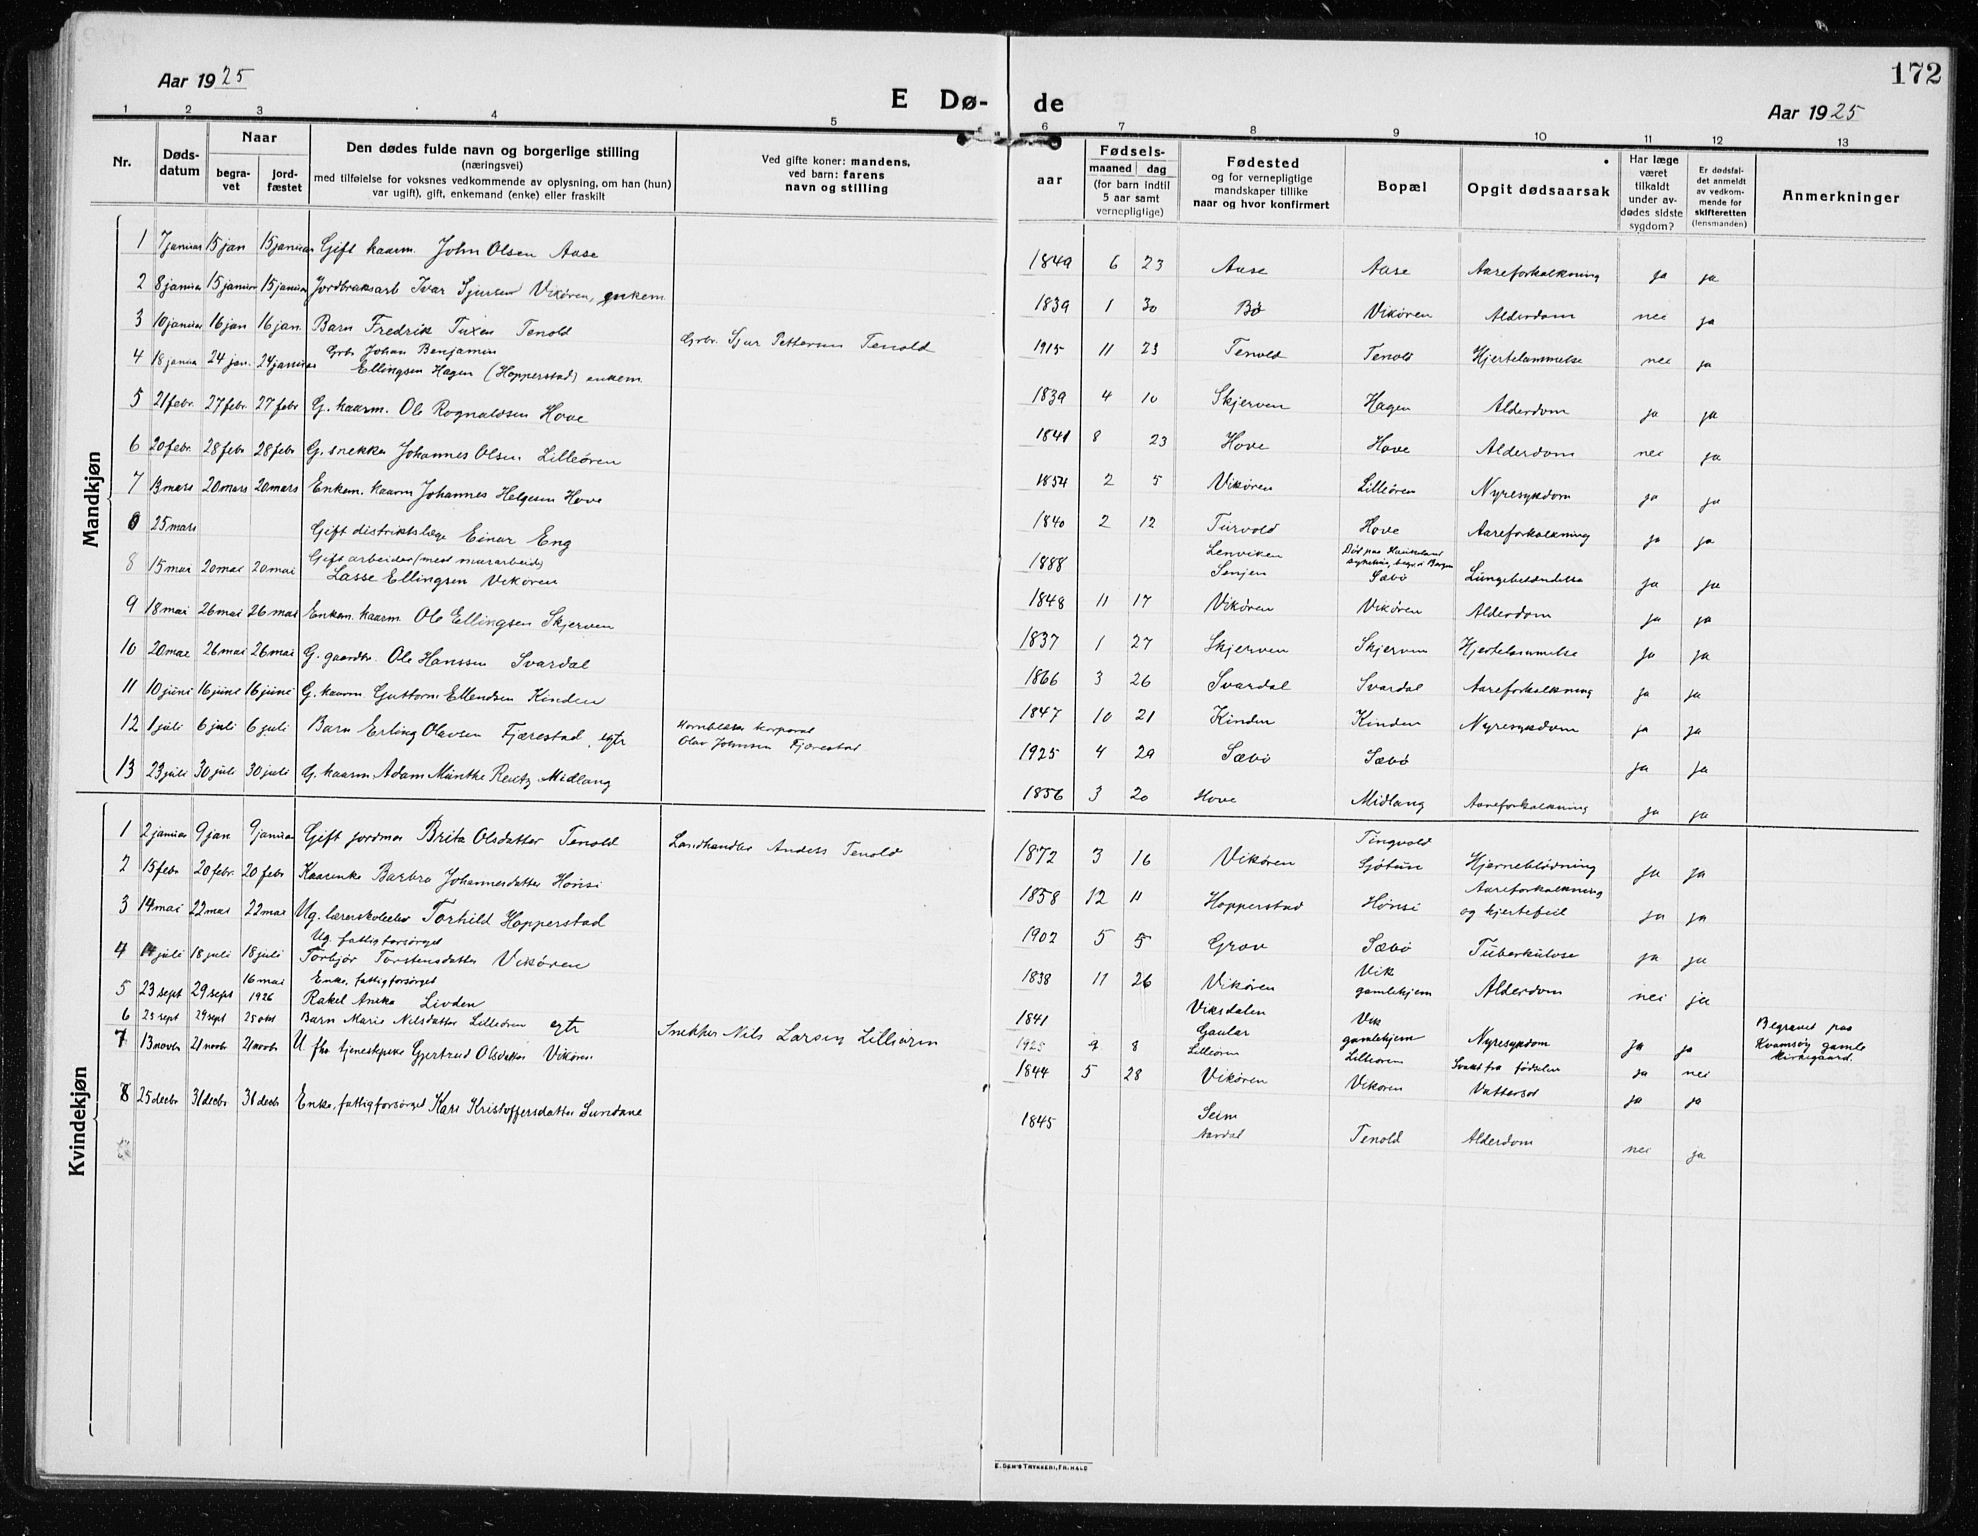 172
Aar 1925
E Dø- de
Aar 1925
1 2 3 4 5 6 7 8 9 10 11 12 13
Nr.
Døds-
datum
Naar
begra-
vet
jord-
fæstet
Den dødes fulde navn og borgerlige stilling
(næringsvei)
med tilføielse for voksnes vedkommende av oplysning, om han (hun)
var ugift), gift, enkemand (enke) eller fraskilt
Ved gifte koner: mandens,
ved barn: farens
navn og stilling
aar
Fødsels-
maaned dag
(for barn indtil
5 aar samt
vernepligtige)
Fødested
og for vernepligtige
mandskaper tillike
naar og hvor konfirmert
Bopæl
Opgit dødsaarsak
Har læge
været
tilkaldt
under av-
dødes sidste
sygdom?
Er dødsfal-
det anmeldt
av vedkom-
mende for
skifteretten
(lensmanden)
Anmerkninger
Mandkjøn
1 7 januar 15 jan 15 januar Gift kaarm. John Olsen Aase 1849 6 23 Aase Aase Aareforkalkning ja ja
2 8 januar 15 januar 15 januar Jordbruksarb Ivar Sjursen Vikøren, enkem 1839 1 30 Bø Vikøren Alderdom nei ja
3 10 januar 16 jan 16 jan. Barn Fredrik Tuxen Tenold Grbr. Sjur Pettersen Tenold 1915 11 23 Tenold Tenold Hjertelammelse nei ja
4 18 janua 24 jan. 24 januar Grbr Johan Benjamin
Ellingsen Hagen (Hopperstad) enkem. 1839 4 10 Skjerven Hagen Alderdom ja ja
5 21 febr. 27 febr 27 febr G. kaarm. Ole Rognaldsen Hove 1841 8 23 Hove Hove Alderdom nei ja
6 20 febr. 28 febr 28 febr G. snekker Johannes Olsen Lilleøren 1854 2 5 Vikøren Lilleøren Nyresykdom ja ja
7 13 mars 20 mars 20 mars Enkem. kaarm Johannes Helgesen Hove 1840 2 12 Turvold Hove Aareforkalkning ja ja
0 25 mars Gift distriktslæge Einar Eng 1888 Lenviken
Senjen Død paa Haukeland
sykehus, begr. i Bergen
Sæbø Lungebetændelse ja ja
8 15 mai 20 mai 20 mai Gift arbeider (mest murarbeid)
Lasse Ellingsen Vikøren 1848 11 17 Vikøren Vikøren Alderdom ja ja
9 18 mai 26 mai 26 mai Enkem. kaarm. Ole Ellingsen Skjerven 1837 1 27 Skjerven Skjerven Hjertelammelse ja ja
10 20 mai 26 mai 26 mai G. gaardbr. Ole Hanssen Svardal 1866 3 26 Svardal Svardal Aareforkalkning ja ja
11 10 juni 16 juni 16 juni G. kaarm Guttorm Ellendsen Kinden 1847 10 21 Kinden Kinden Nyresykdom ja ja
12 1 juli 6 juli 6 juli Barn Erling Olavsen Fjærestad, egte Hornblæser korporal
Olav Johnsen Fjærestad 1925 4 29 Sæbø Sæbø ja ja
13 23 juli 30 juli 30 juli G. kaarm. Adam Munthe Rentz Midlang 1856 3 20 Hove Midlang Aareforkalkning ja ja
Kvindekjøn
1 2 januar 9 jan 9 januar Gift jordmor Brita Olsdatter Tenold Landhandler Anders Tenold 1872 3 16 Vikøren Tingvold
Sjøtun Hjerneblødning ja ja
2 15 febr 20 febr. 20 febr Kaarenke Barbra Johannesdatter Hønsi 1858 12 11 Hopperstad Hønsi Aareforkalkning
og hjertefeil ja ja
3 14 mai 22 mai 22 mai Ug. lærerskoleelev Torhild Hopperstad 1902 5 5 Grov Sæbø Tuberkulose ja ja
4 14 juli 18 juli 18 juli Ug. fattigforsørget
Torbjør Torstensdatter Vikøren 1838 11 26 Vikøren Vik
gamlehjem Alderdom nei ja
5 23 sept 29 sept 16 mai
1926 Enke, fattigforsørget
Rakel Anika Livden 1841 Viksdalen
Gaular Vik
gamlehjem Nyresykdom ja ja Begravet paa
Kvamsøy gamle
kirkegaard.
6 25 sept 29 sept 25 okt Barn Marie Nilsdatter Lilleøren egte Snekker Nils Larsen Lilleøren 1925 9 8 Lilleøren Lilleøren Svakt fra fødselen ja nei
7 13 novbr 21 novbr 21 novbr U. fhv tjenestepike Gjertrud Olsdatter Vikøren 1844 5 28 Vikøren Vikøren Vattersot ja ja
8 25 decbr 31 decbr 31 decbr Enke, fattigforsørget Kari Kristoffersdatter Sundane 1845 Seim
Aardal Tenold Alderdom nei ja
E. DEM'S TRYKKERI, FR. HALD